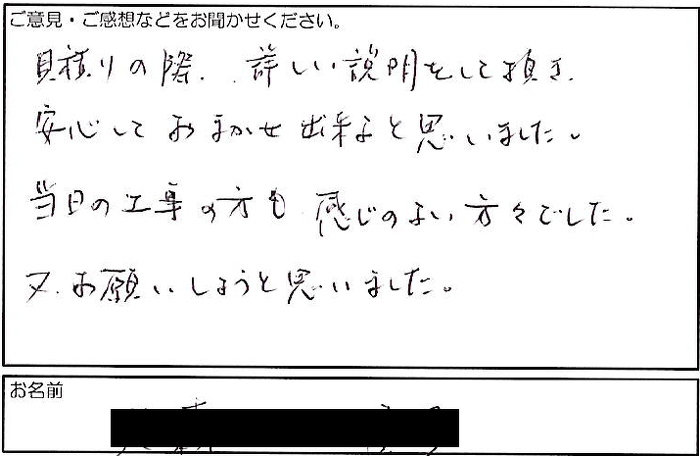 ご意見・ご感想などをお聞かせください。
見積りの際、詳しい説明をして頂き、
安心しておまかせ出来ると思いました。
当日の工事の方も感じのよい方々でした。
又、お願いしようと思いました。
お名前